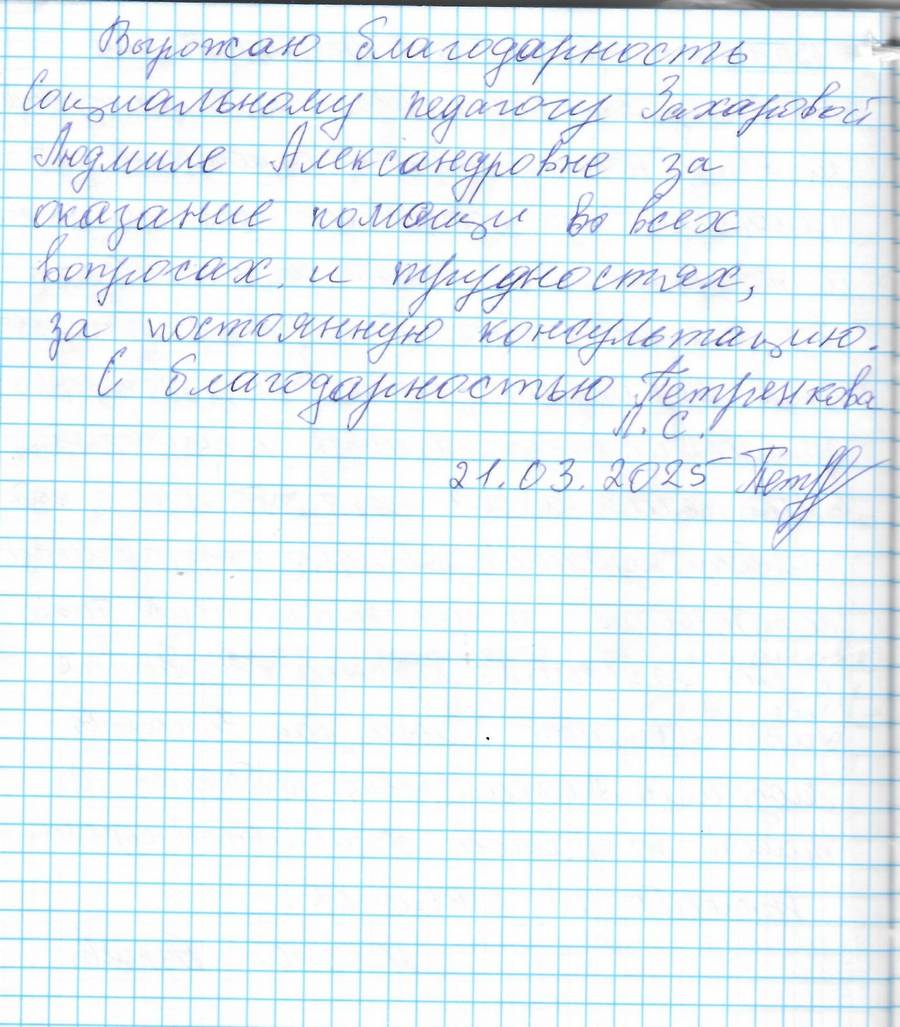 Вырожаю благодарность
Социальному педагогу Захаровой
Людмиле Александровне за
оказание помощи во всех
вопросах и трудностях,
за постоянную консультацию.
С благодарностью Петренкова
Л. С.
21.03.2025